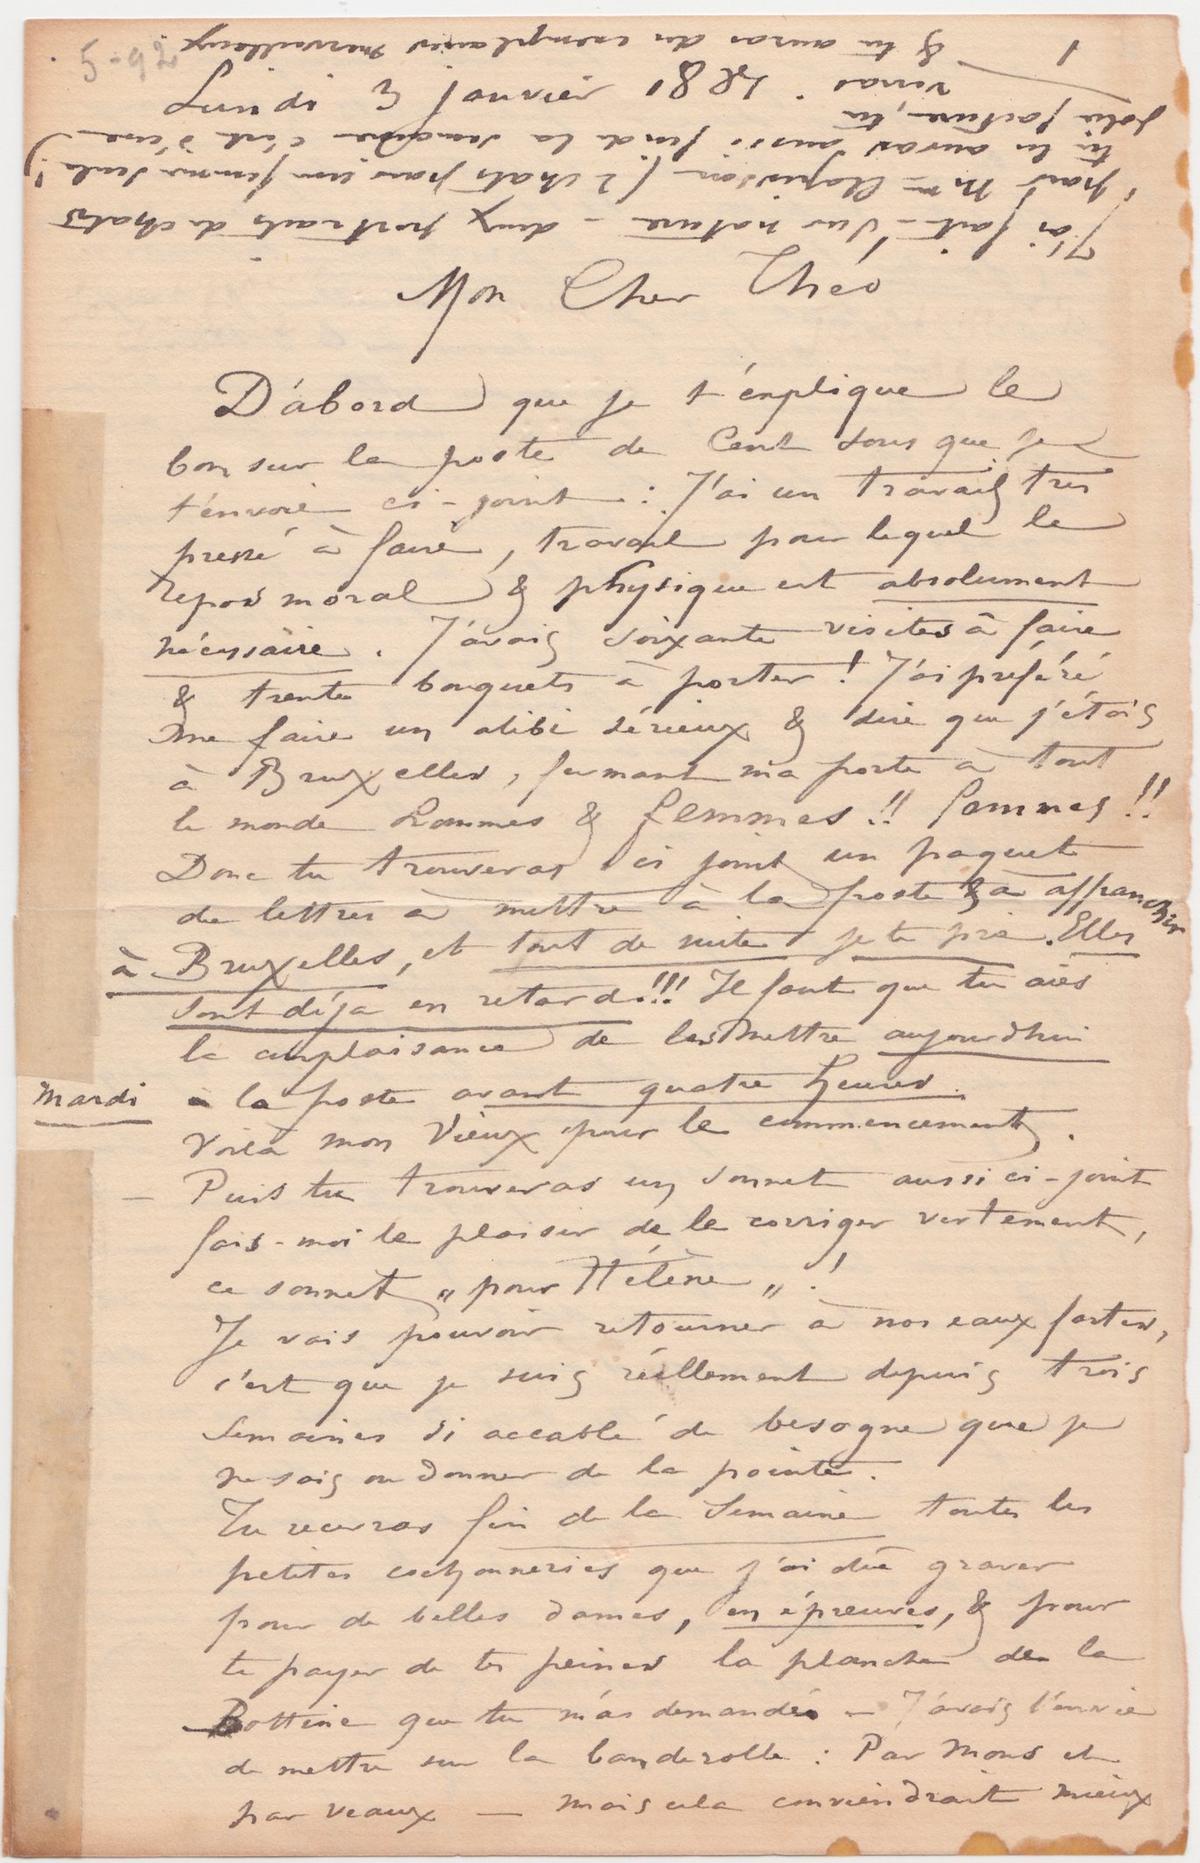 5-92
Lundi 3 Janvier 1881
Mon Cher Théo
D'abord que je t'explique le
bon sur la poste de Cent sous que je
t'envoie ci-joint : J'ai un travail très
pressé à faire, travail pour lequel le
repos moral & physique est absolument
nécessaire. J'avais soixante visites à faire
& trente bouquets à porter ! J'ai préféré
me faire un alibi sérieux & dire que j'étais
à Bruxelles, fermant ma porte à tout
le monde hommes & femmes !! femmes !!
Donc tu trouveras ci joint un paquet
de lettres à mettre à la poste & à affranchir
à Bruxelles, et tout de suite je te prie. Elles
sont déjà en retard !!! Il faut que tu aies
la complaisance de les mettre aujourd'hui
Mardi à la poste avant quatre heures.
Voilà mon Vieux pour le commencement.
— Puis tu trouveras un sonnet aussi ci-joint
fais-moi le plaisir de le corriger vertement,
ce sonnet „pour Hélène„ !
Je vais pouvoir retourner à nos eaux fortes,
c'est que je suis réellement depuis trois
semaines si accablé de besogne que je
ne sais ou donner de la pointe.
Tu recevras fin de la Semaine toutes les
petites cochonneries que j'ai dû graver
pour de belles dames, en épreuves, & pour
te payer de tes peines la planche de la
Bottine que tu m'as demandée — J'avais l'envie
de mettre sur la banderolle : Par Mons et
par Veaux — mais cela conviendrait mieux
J'ai fait – sur nature – deux portraits de chats
pour Mme Clapisson (2 chats pour une femme seule !)
tu les auras aussi fin de la semaine c'est d'une
jolie facture, tu
verras.
& tu auras des exemplaires merveilleux